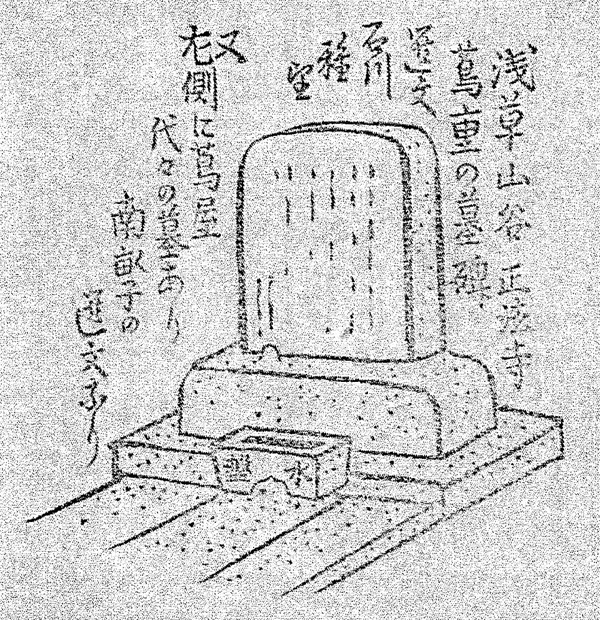 浅草山谷 正法寺
蔦重の墓碑
選文
石川
雅
望
又
右側に蔦屋
代々の墓あり
南畝子の
選文なり
水